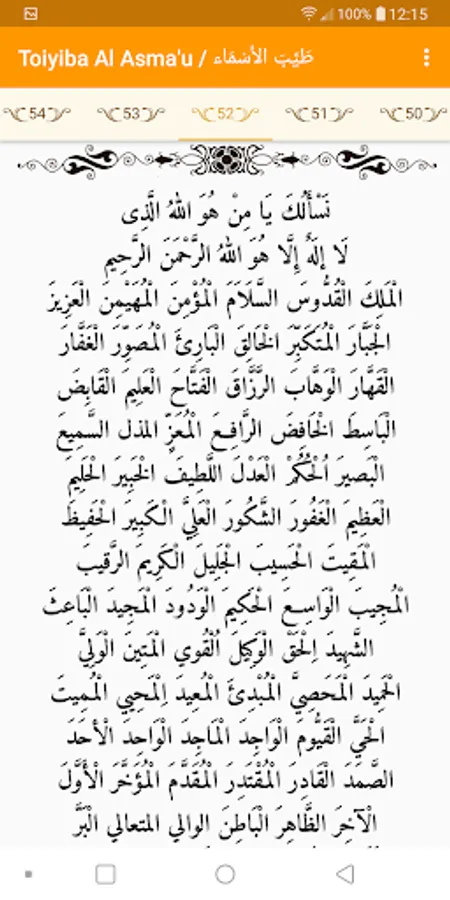 100% 12:15
Toiyiba Al Asma'u / طَيِّبَ الأَسْمَاء
54 53 52 51 50
نَسْأَلُكَ يَا مِنْ هُوَ اللهُ الَّذِى
لَا إِلَهَ إِلَّا هُوَ اللهُ الرَّحْمَنَ الرَّحِيم
الْمَلِكَ الْقُدُّوسَ السَّلَامَ الْمُؤْمِنَ الْمُهَيْمِنَ الْعَزِيزَ
الْجَبَّارَ الْمُتَكَبِّرَ الْخَالِقَ الْبَارِئَ الْمُصَوِّرَ الْغَفَّارَ
الْقَهَّارَ الْوَهَّابَ الرَّزَّاقَ الْفَتَّاحَ الْعَلِيمَ الْقَابِضَ
الْبَاسِطَ الْخَافِضَ الرَّافِعَ الْمُعَزِّ المذل السَّمِيعَ
الْبَصيرَ اُلْحُكُمْ الْعَدْلَ اللَّطِيفَ الْخَبِيرَ الْحَلِيمَ
الْعَظِيمَ الْغَفُورَ الشَّكُورَ الْعَلِيَّ الْكَبِيرَ الْحَفِيظَ
الْمَقِيتَ الْحَسِيبَ الْجَلِيلَ الْكَرِيمَ الرَّقيبَ
الْمُجِيبَ الْوَاسِعَ الْحَكِيمَ الْوَدُودَ الْمَجِيدَ الْبَاعِثَ
الشَّهِيدَ اِلْحَقْ الْوَكِيلَ اُلْقُوي الْمَتِينَ الْوَلِيَّ
الْحَمِيدَ الْمَحَصِيَّ الْمُبْدِئَ الْمُعِيدَ اِلْمَحِيي الْمُمِيتَ
الْحَيَّ الْقَيُّومَ الْوَاجِدَ الْمَاجِدَ الْوَاحِدَ الْأحَدَ
الصَّمَدَ الْقَادِرَ الْمُقْتَدِرَ الْمُقَدَّمَ الْمُؤَخَّرَ الْأَوَّلَ
الْآخِرَ الظَّاهِرَ الْبَاطِنَ الوالي المتعالي الْبَرَّ